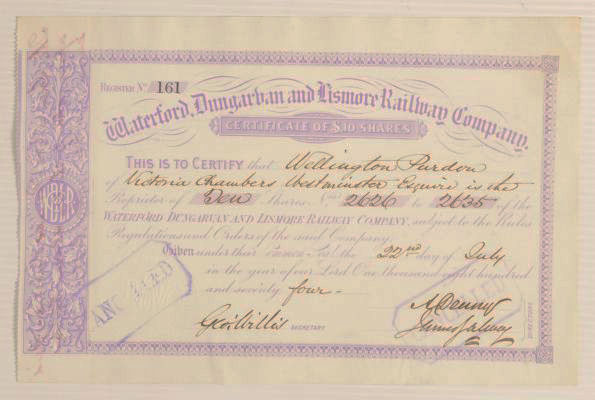 REGISTER No 161
Waterford, Dungarvan and Lismore Railway Company.
CERTIFICATE OF $10 SHARES
THIS IS TO CERTIFY that Wellington Purdon
of Victoria Chambers Westminster Esquire is the
Proprietor of Ten Shares Nos 2626 to 2635 of the
WATERFORD DUNGARVAN AND LISMORE RAILWAY COMPANY, subject to the Rules
Regulations and Orders of the said Company.
Given under their Common Seal the 22nd day of July
in the year of our Lord One thousand eight hundred
and seventy four -
CANCELLED
Geo. Willis SECRETARY
A Denny
James Galwey
DIRECTORS